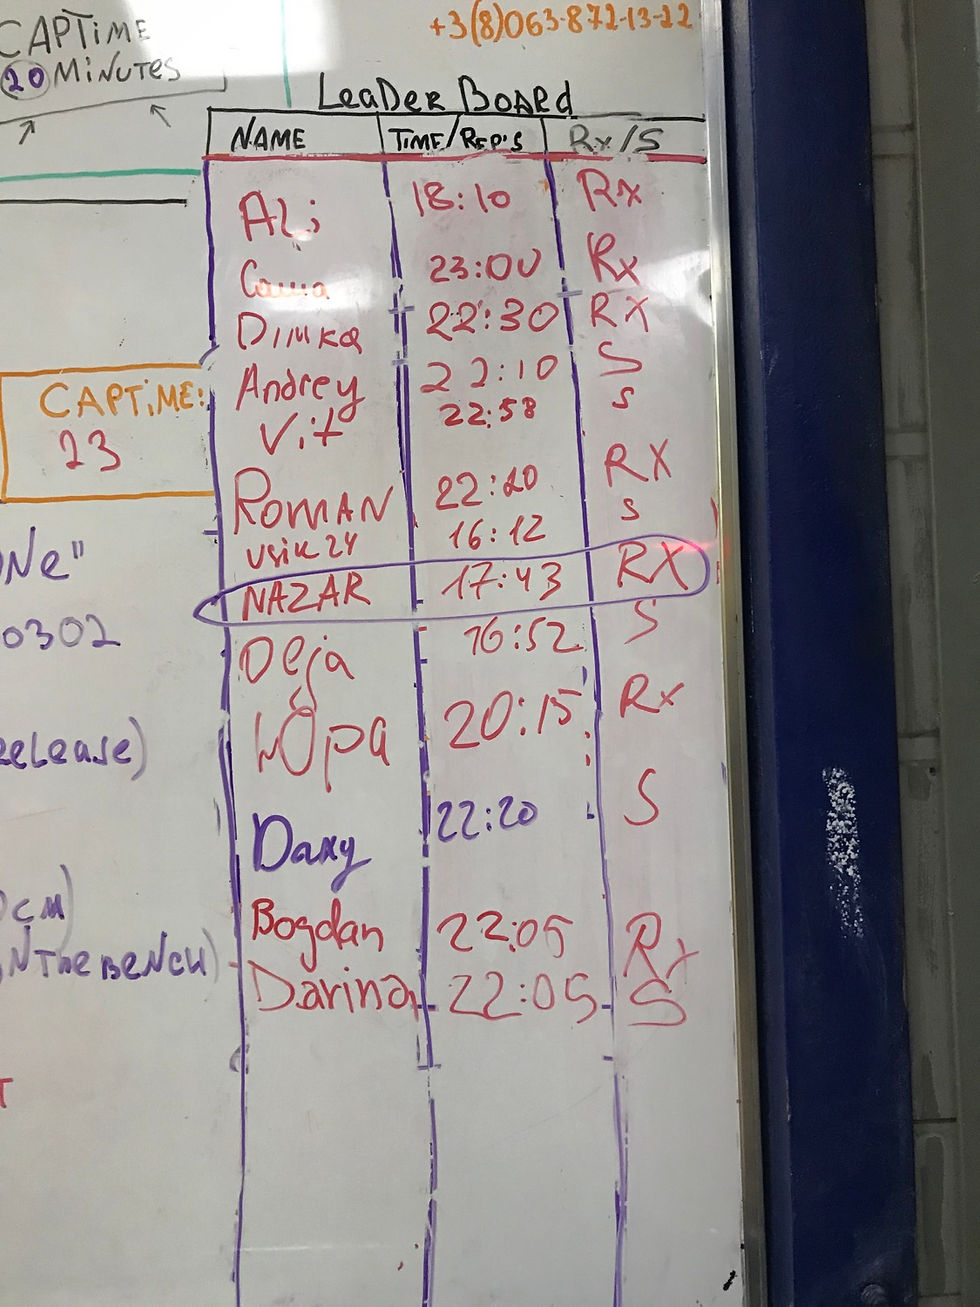 CAPTIME
20 MINUTES
+3(8)063-872-13-22
LEADER BOARD
NAME TIME/REP'S Rx/S
Ali 18:10 Rx
Саша 23:00 Rx
DIMKA 22:30 RX
Andrey 22:10 S
Vit 22:58 S
CAPTIME:
23
ROMAN 22:20 RX
usik24 16:12 S
NAZAR 17:43 RX
ONe"
0302
Deja 16:52 S
20:15 Rx
ReLeASe)
22:20 S
CM)
Bogdan 22:05 Rx
NTheBeNCH)
Darina 22:05 S
T